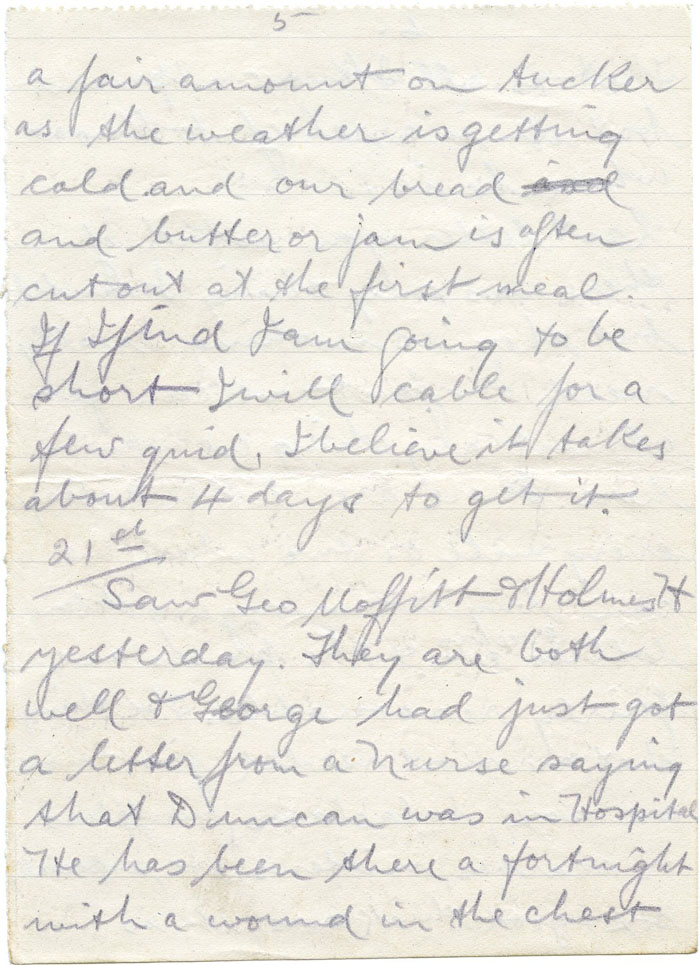 5
a fair amount on tucker
as the weather is getting
cold and our bread and
and butter or jam is often
cut out at the first meal.
If I find I am going to be
short I will cable for a
few quid. I believe it takes
about 4 days to get it.
21st
Saw Geo Moffitt & Holmes H
yesterday. They are both
well & George had just got
a letter from a Nurse saying
that Duncan was in Hospital
He has been there a fortnight
with a wound in the chest